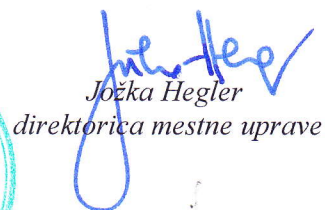 Jožka Hegler
direktorica mestne uprave